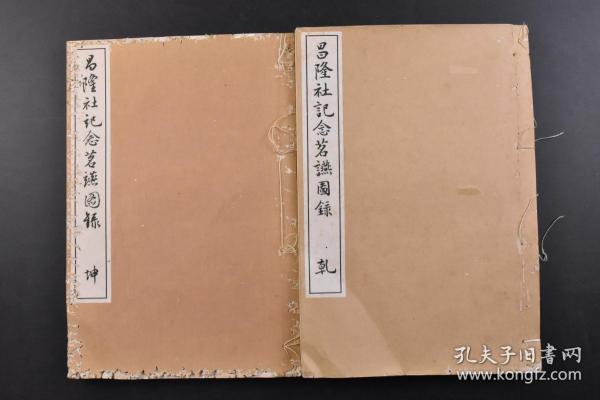 昌隆社記念茗讌圖録 乾
昌隆社記念茗讌圖録 坤
孔夫子旧书网
www.kongfz.com